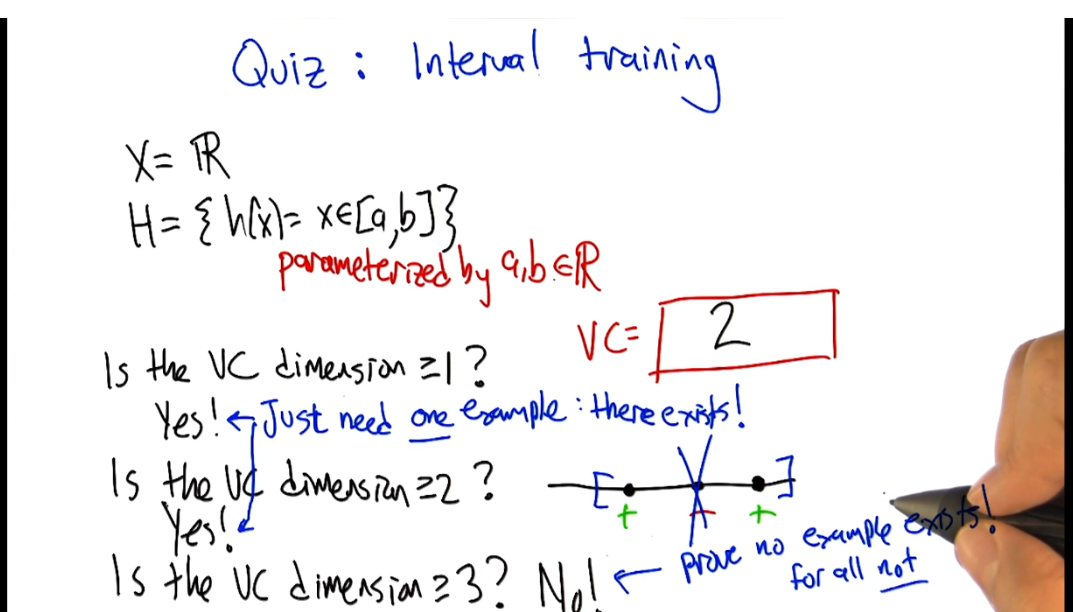 Quiz: Interval training
X= ℝ
H= { h(x)= x∈[a,b]}
parameterized by a,b ∈ℝ
VC= 2
Is the VC dimension ≥1?
Yes! ← Just need one example: there exists!
Is the VC dimension ≥2?
Yes!
[ ]
+ - +
Is the VC dimension ≥3? No! ← prove no example exists!
for all not